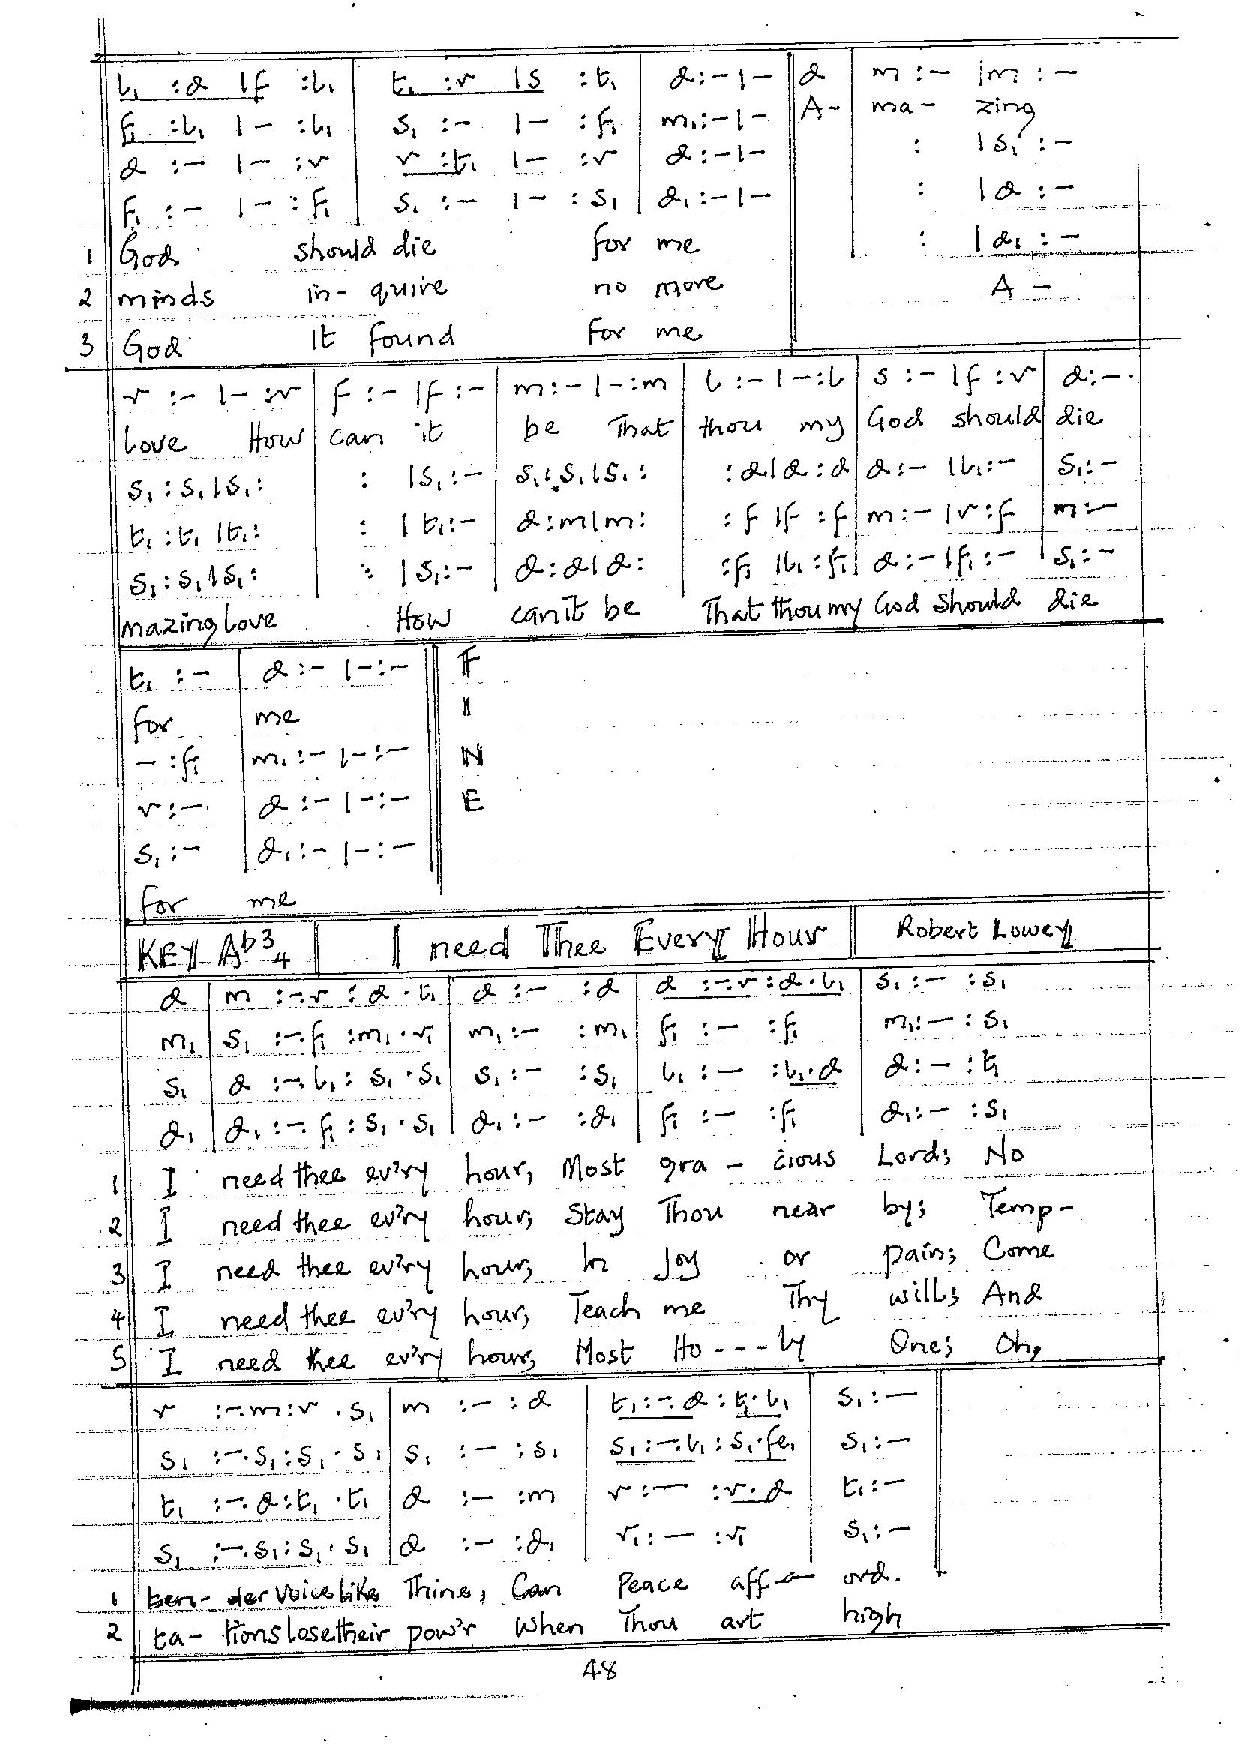 l₁ :d lf :l₁ | t₁ :r ls :t₁ | d:-l- || d | m :- lm :-
f₁ :l₁ l- :l₁ | s₁ :- l- :f₁ | m₁:-l- || A- | ma- zing
d :- l- :r | r :t₁ l- :r | d:-l- || : ls₁ :-
f₁ :- l- :f₁ | s₁ :- l- :s₁ | d₁:-l- || : ld :-
1 God should die for me || : ld₁ :-
2 minds in- quire no more A -
3 God It found for me
r :- l- :r | f :- lf :- | m:- l-:m | l :- l-:l | s :- lf :r | d:-.
love How | can it | be That | thou my | God should | die
s₁ : s₁ ls₁ : | : ls₁ :- | s₁:s₁ ls₁ : | :dld :d | d:- ll₁:- | s₁:-
t₁ :t₁ lt₁: | : lt₁:- | d:mlm: | :f lf :f | m:- lr :f | m:-
s₁:s₁ls₁: | : ls₁:- | d:dld: | :f₁ ll₁ :f₁ | d:-lf₁ :- | s₁:-
mazing love How can it be That thou my God should die
t₁ :- | d:- l-:- || F
for me I
- :f₁ | m₁:- l-:- || N
r :-. | d :- l-:- || E
s₁ :- | d₁:- l-:-
for me
KEY Ab 3/4 || I need Thee Every Hour || Robert Lowey
d | m :-.r : d . t₁ | d :- :d | d :-.r :d . l₁ | s₁ :- :s₁
m₁ | s₁ :-.f₁ :m₁ . r₁ | m₁ :- :m₁ | f₁ :- :f₁ | m₁:- : s₁
s₁ | d :-.l₁ : s₁ . s₁ | s₁ :- :s₁ | l₁ :- :l₁.d | d :- :t₁
d₁ | d₁ :-.f₁ : s₁ . s₁ | d₁ :- :d₁ | f₁ :- :f₁ | d₁:- :s₁
1 I need thee ev'ry hour, Most gra - cious Lord; No
2 I need thee ev'ry hour, Stay Thou near by; Temp-
3 I need thee ev'ry hour, In Joy or pain; Come
4 I need thee ev'ry hour, Teach me Thy will; And
5 I need thee ev'ry hour, Most Ho - - - ly One; Oh,
r :-.m:r . s₁ | m :- :d | t₁:-.d : t₁.l₁ | s₁ :-
s₁ :-.s₁ :s₁ . s₁ | s₁ :- :s₁ | s₁ :-.l₁ : s₁.fe₁ | s₁ :-
t₁ :-.d :t₁ .t₁ | d :- :m | r :- :r.d | t₁ :-
s₁ :-.s₁ : s₁ . s₁ | d :- :d₁ | r₁ :- :r₁ | s₁ :-
1 ten- der voice like Thine, Can Peace aff- ord.
2 ta- tions lose their pow'r When Thou art high
48